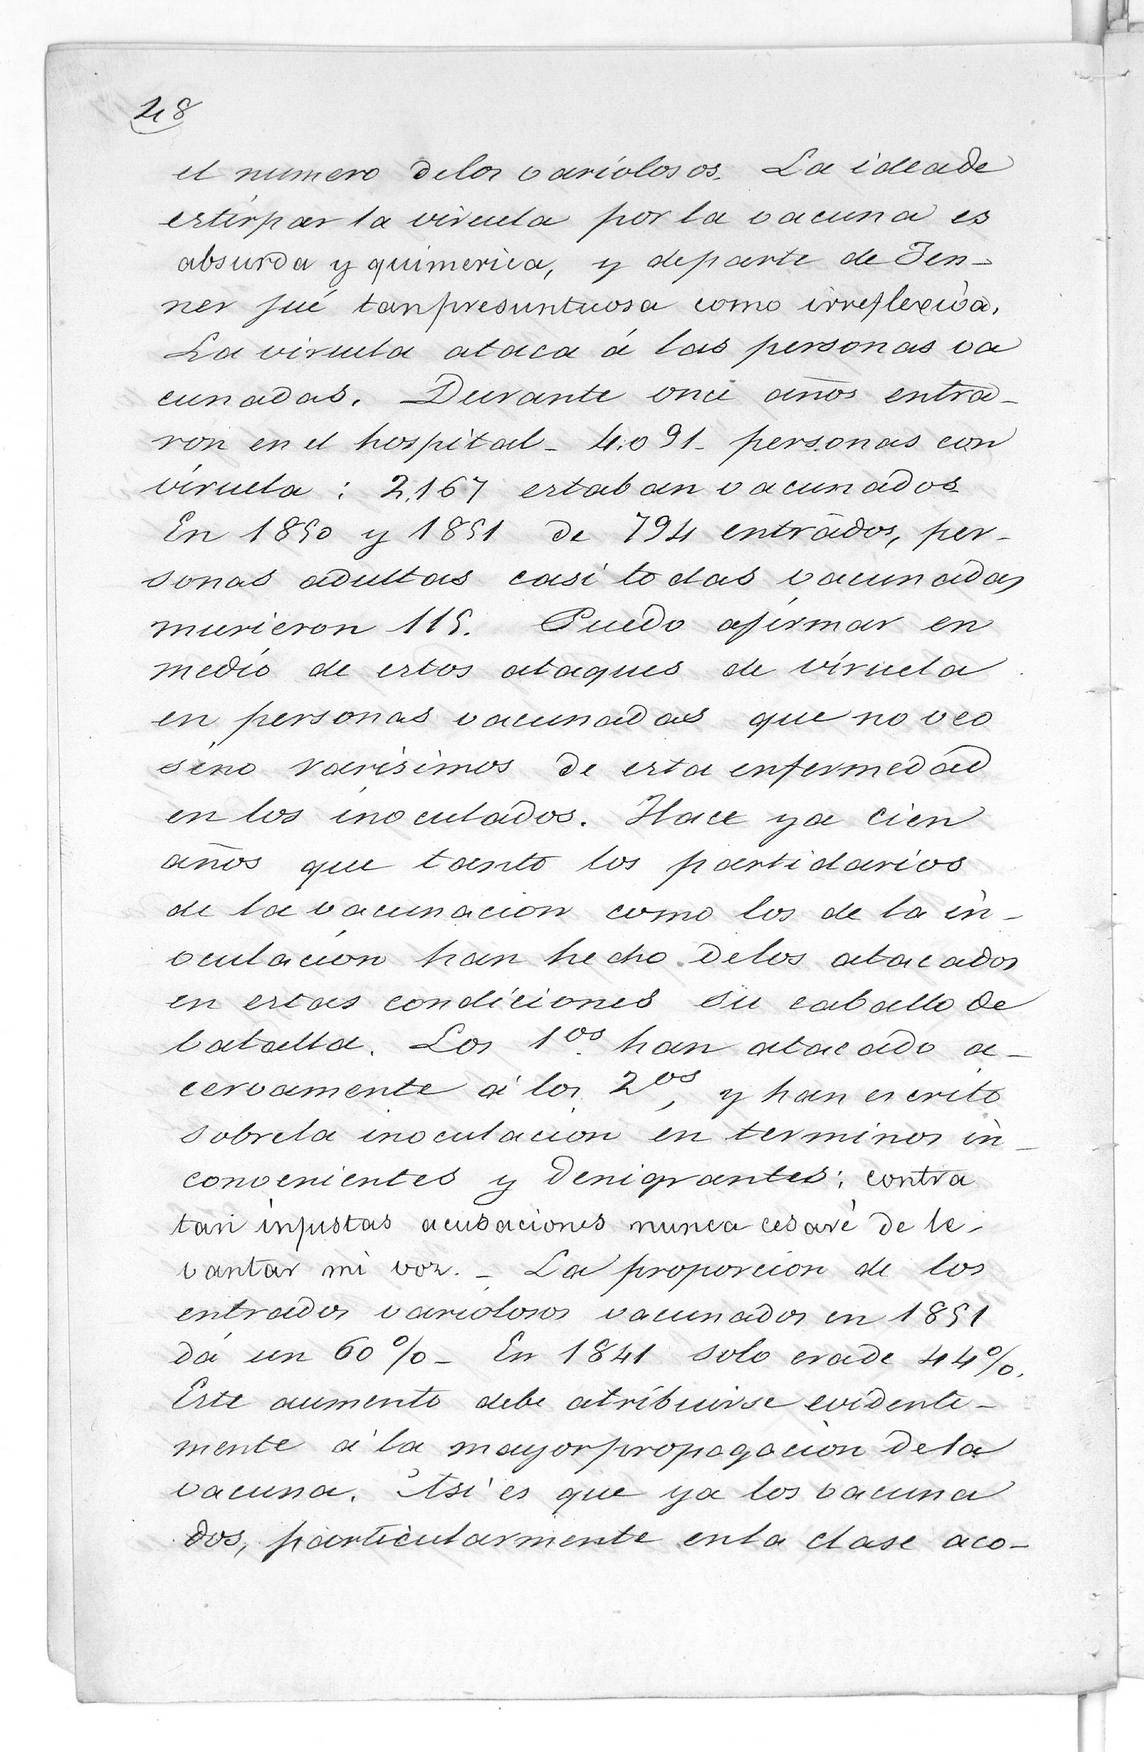 48
el numero delos variolosos. La idea de
estirpar la viruela por la vacuna es
absurda y quimerica, y departe de Jen-
ner fué tan presuntuosa como irreflexiva.
La viruela ataca á las personas va
cunadas. Durante once años entra-
ron en el hospital - 4.091 - personas con
viruela : 2.167 estaban vacunados
En 1850 y 1851 de 794 entrados, per-
sonas adultas casi todas vacunadas
murieron 115. Puedo afirmar en
medio de estos ataques de viruela
en personas vacunadas que no veo
sino rarisimos de esta enfermedad
en los inoculados. Hace ya cien
años que tanto los partidarios
de la vacunacion como los de la in-
oculacion han hecho delos atacados
en estas condiciones su caballo de
batalla. Los 1os. han atacado a-
cervamente á los 2os, y han escrito
sobrela inoculacion en terminos in-
convenientes y denigrantes; contra
tan injustas acusaciones nunca cesaré de le-
vantar mi voz. - La proporcion de los
entrados variolosos vacunados en 1851
dá un 60 % - En 1841 solo erade 44%.
Este aumento debe atribuirse evidente-
mente á la mayor propagacion dela
vacuna. Asi es que ya los vacuna
dos, particularmente enla clase aco-